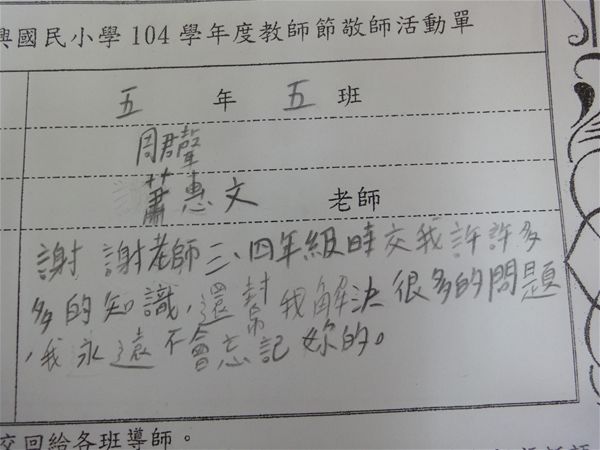 興國民小學104學年度教師節敬師活動單
五 年 五 班
周君聲
蕭惠文 老師
謝謝老師三、四年級時交我許許多
多的知識,還幫我解決很多的問題
,我永遠不會忘記妳的。
交回給各班導師。